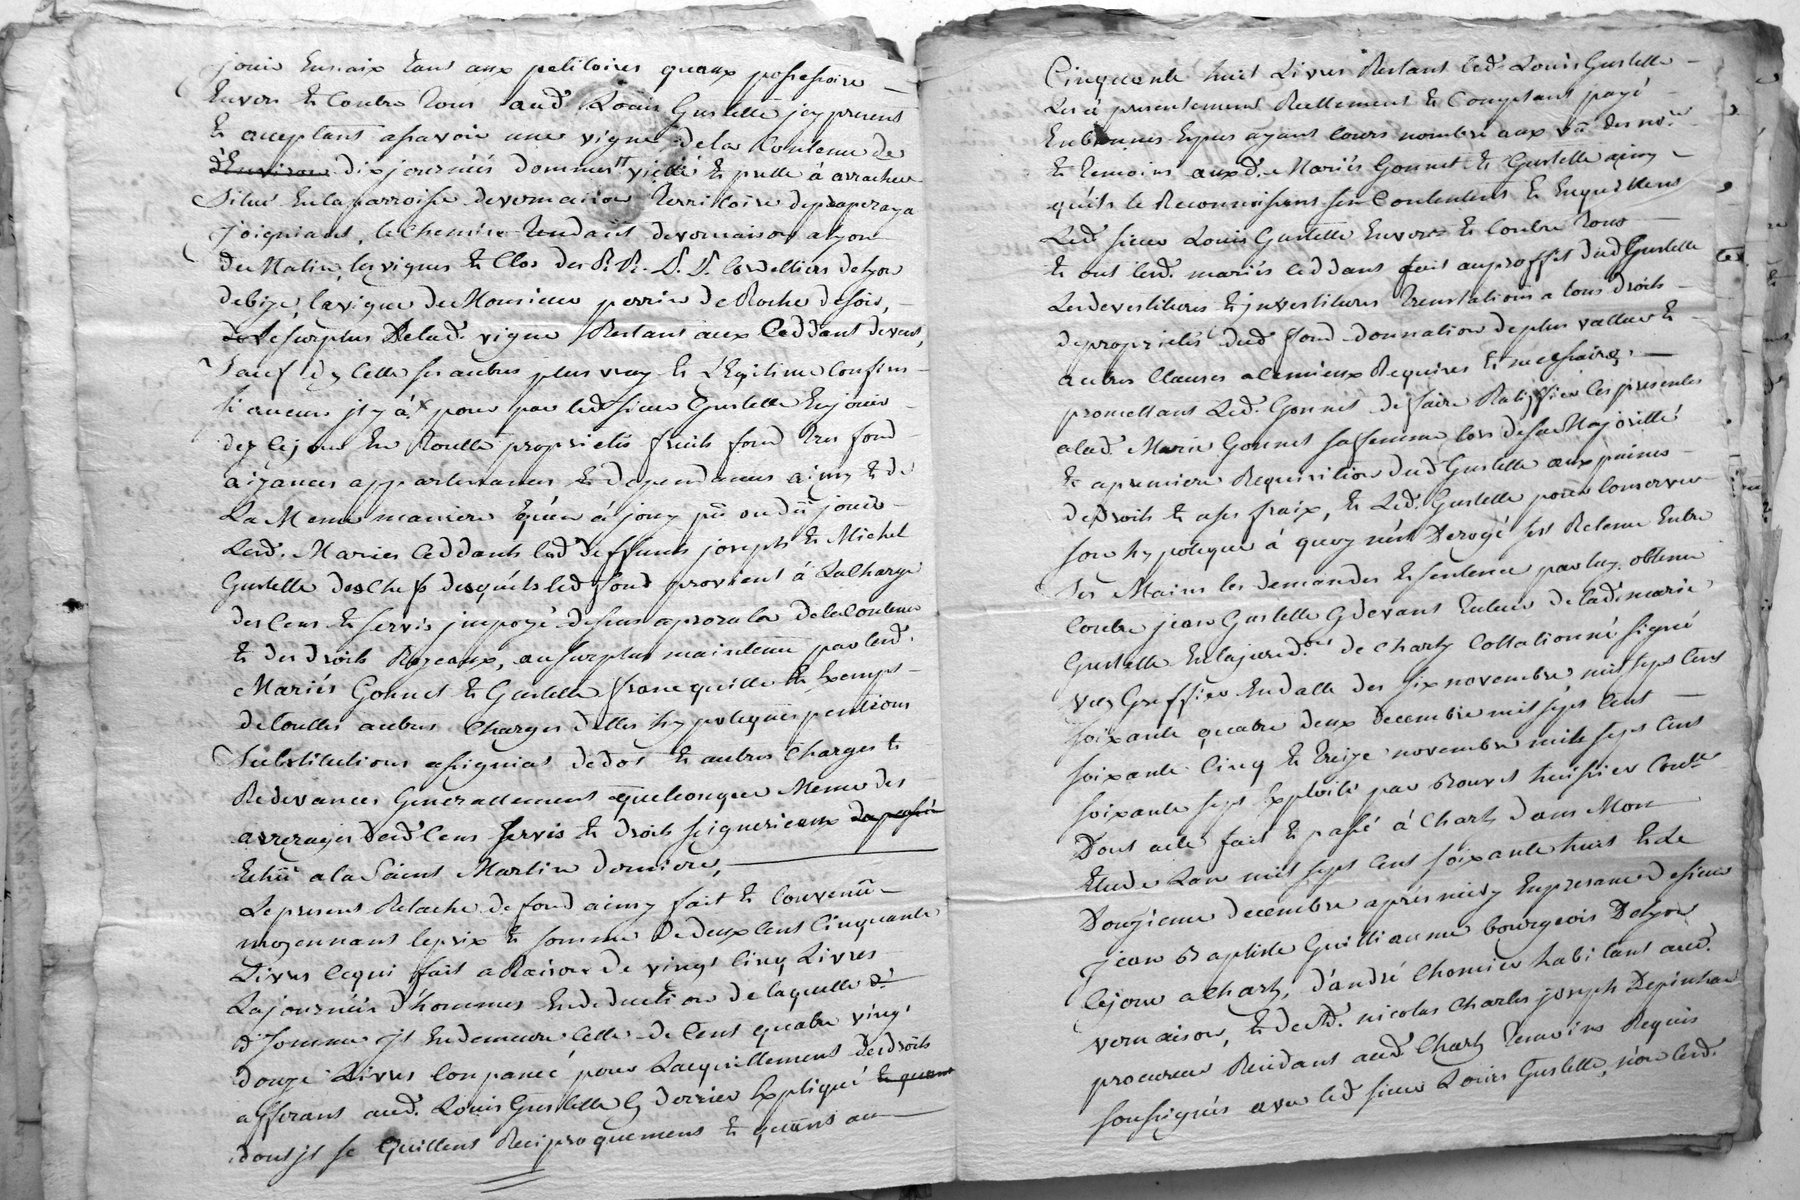 jouir Enpaix tant aux petitoires quaux possessoire
Envers Et Contre tous aud. Louis Gustelle jcy present
Et acceptant asavoir une vigne dela Contenue de
d'Environ dix journéés dommes vieille Et prette á arracher
Situé Enla parroisse devernaison Territoire de
Joignant, le Chemin Tendant devernaison alyon
du Matin, les vignes Et Clos des R. R. P. P. Cordelliers delyon
debize, lavigne de Monsieur perrin de Roche desoir,
de Lesurplus Delad. vigne Restant aux Ceddant devent,
Sauf d Celle ses autres plus vray Et Légitime Confins
si aucuns jl y á x pour par led. sieur Gustelle Enjouir
dez Cejour En Toutte proprietés fruits fond Tres fond
aizances appartenances Et dependances ainsy Et de
La Meme maniere En á joüy pû ou dû jouir
Lesd. Mariés Ceddants lesd. deffunts joseph Et Michel
Gustelle des Chefs desquéls led. fond provient á La Charge
des Cens Et servis jmpozé dessus aprorata dela Contenue
Et des droits Rezeaux, ausurplus maintenu par lesd.
Mariés Gonnet Et Gustelle franc quitte Et Exempt
de touttes autres Charges dettes hypotéques pentions
Substitutions assignias dedot Et autres Charges Et
Redevances Generallement quelconques Meme des
arrerages desd. Cens servis Et droits seigneuriaux
Echû ala Saint Martin derniere,
Le present Relache de fond ainsy fait Et Convenû
moyennant leprix Et somme De deux Cent Cinquante
Livres Cequi fait a Raison de vingt Cinq Livres
La journéé d'hommes En deduction de laquelle d.
d. somme jl En demeure Celle de Cent quatre vingt
douze Livres Conpancé pour Lacquittement des droits
afferant aud. Louis Gustelle Cy derrier Expliqué Et quant
dont jls se quittent Reciproquement Et quant au
Cinquante huit Livres Restant led. Louis Gustelle
Les á presentement Reellement Et Comptant payé
En bonnes Espes ayant Cours nombré aux vû des no.re
Et Temoins auxd. Mariés Gonnet Et Gustelle ainsy
quils le Reconnoissent sen Contentent Et Enquittent
Led. sieur Louis Gustelle Envers Et Contre Tous
Et ont lesd. mariés Ceddant fait auproffit dud. Gustelle
Les devestitures Et jnvestitures Translations a tous droits
deproprietés dud. fond donnation deplus vallue Et
autres Clauses alemieux Requises Et necessaires,
promettant Led. Gonnet de faire Ratiffier les presentes
alad. Marie Gonnet sa femme lors desa Majorité
Et apremiere Requisition dud. Gustelle aux peines
de droits Et ases fraix, Et Led. Gustelle pour Conserver
son hypoteque á quoy nést Derogé sest Retenu Entre
ses Mains les demandes Et sentence par luy obtenue
Contre jean Gustelle Cydevant tuteur de lad. marie
Gustelle En lajurid.on de Charly Collationné signé
vez Greffier Endatte des six novembre mil sept Cent
soixante quatre deux decembre mil sept Cent
soixante Cinq Et treize novembre mille sept Cent
soixante sept Exploité par Bouvet huissier Contlle
Dont acte fait Et passé á Charly dans Mon
Etude Lan mil sept Cent soixante huit Et Le
Douzieme decembre aprésmidy En presance de sieur
Jean Baptiste Guilliaume bourgeois Delyon
Cejour a Charly, dandré Chomier habitant aud.
vernaison, Et de Md. nicolas Charles joseph Depinhac
procureur Residant aud. Charly Temoins Requis
soussignés avec led. sieur Louis Gustelle, non lesd.